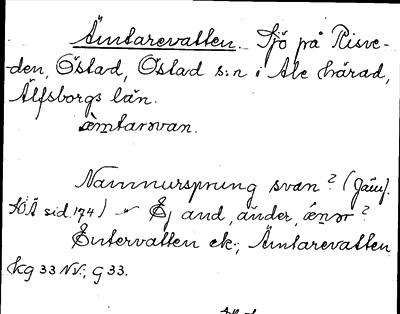 Ämtarevatten. Sjö på Risve-
den, Östad, Östad s:n i Ale härad,
Älfsborgs län.
æ̀mtarəvan.
Namnursprung svan? (Jäm).
sid. 174) Ej and, änder, ǽnər?
Entervatten ek.; Ämtarevatten
kg 33 NV.; G 33.